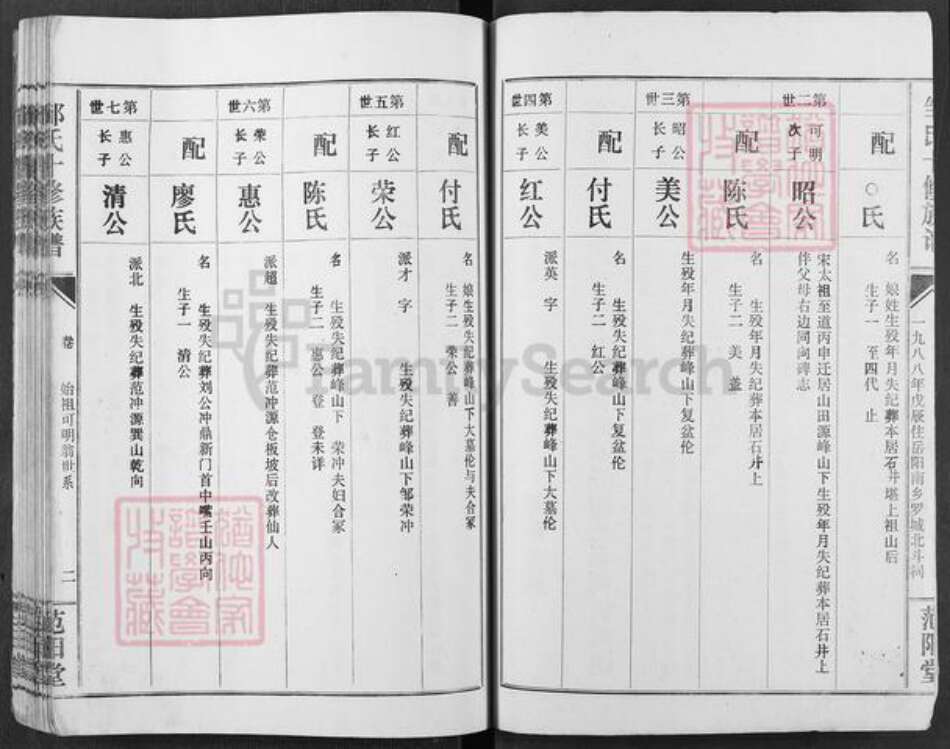 配
○氏
名 娘姓生殁年月失纪葬本居石井堪上祖山后
生子一 至四代 止
一九八八年戊辰住岳阳南乡罗城北斗祠
第二世
可明
次子
昭公
宋太祖至道丙申迁居山田源峰山下生殁年月失纪葬本居石井上
伴父母右边同向碑志
配
陈氏
名 生殁年月失纪葬本居石井上
生子二 美 盖
第三世
昭公
长子
美公
生殁年月失纪葬峰山下复盆伦
配
付氏
名 生殁失纪葬峰山下复盆伦
生子二 红公
第四世
美公
长子
红公
派英 字 生殁失纪葬峰山下大墓伦
范阳堂
配
付氏
名 娘生殁失纪葬峰山下大墓伦与夫合冢
生子二 荣公 善
第五世
红公
长子
荣公
派才 字 生殁失纪葬峰山下邹荣冲
配
陈氏
名 生殁失纪葬峰山下 荣冲夫妇合冢
生子二 惠公 登 登未详
第六世
荣公
长子
惠公
派超 生殁失纪葬范冲源仓板坡后改葬仙人
配
廖氏
名 生殁失纪葬刘公冲鼎新门首中嘴壬山丙向
生子一 清公
第七世
惠公
长子
清公
派北 生殁失纪葬范冲源巽山乾向
邹氏十修族谱
卷
始祖可明翁世系
二
范阳堂
FamilySearch